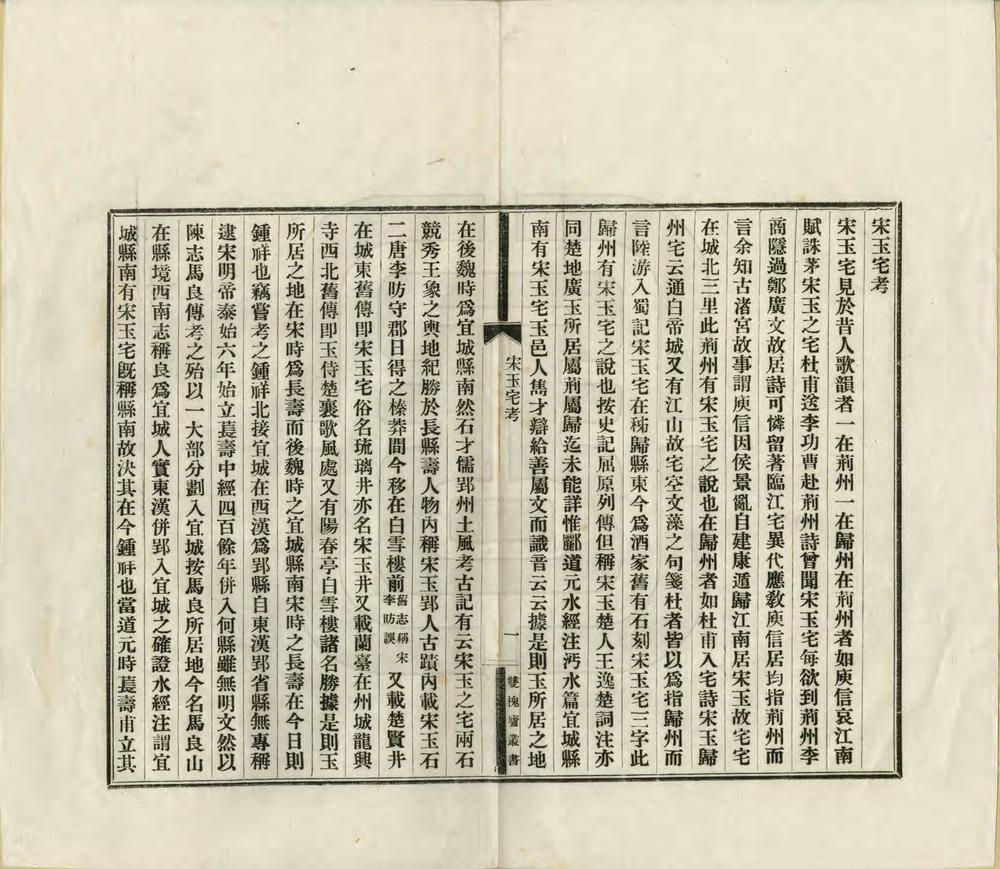 宋玉宅考
宋玉宅見於昔人歌韻者一在荊州一在歸州在荊州者如庾信哀江南
賦誅茅宋玉之宅杜甫送李功曹赴荊州詩曾聞宋玉宅每欲到荊州李
商隱過鄭廣文故居詩可憐留著臨江宅異代應教庾信居均指荊州而
言余知古渚宮故事謂庾信因侯景亂自建康遁歸江南居宋玉故宅宅
在城北三里此荊州有宋玉宅之說也在歸州者如杜甫入宅詩宋玉歸
州宅云通白帝城又有江山故宅空文藻之句箋杜者皆以爲指歸州而
言陸游入蜀記宋玉宅在秭歸縣東今爲酒家舊有石刻宋玉宅三字此
歸州有宋玉宅之說也按史記屈原列傳但稱宋玉楚人王逸楚詞注亦
同楚地廣玉所居屬荊屬歸迄未能詳惟酈道元水經注沔水篇宜城縣
南有宋玉宅玉邑人雋才辯給善屬文而識音云云據是則玉所居之地
宋玉宅考
一
雙槐廬叢書
在後魏時爲宜城縣南然石才儒郢州土風考古記有云宋玉之宅兩石
競秀王象之輿地紀勝於長縣壽人物內稱宋玉郢人古蹟內載宋玉石
二唐李昉守郡日得之榛莽間今移在白雪樓前舊志稱宋李昉誤又載楚賢井
在城東舊傳卽宋玉宅俗名琉璃井亦名宋玉井又載蘭臺在州城龍興
寺西北舊傳卽玉侍楚襄歌風處又有陽春亭白雪樓諸名勝據是則玉
所居之地在宋時爲長壽而後魏時之宜城縣南宋時之長壽在今日則
鍾祥也竊嘗考之鍾祥北接宜城在西漢爲郢縣自東漢郢省縣無專稱
逮宋明帝泰始六年始立萇壽中經四百餘年併入何縣雖無明文然以
陳志馬良傳考之殆以一大部分劃入宜城按馬良所居地今名馬良山
在縣境西南志稱良爲宜城人實東漢併郢入宜城之確證水經注謂宜
城縣南有宋玉宅旣稱縣南故決其在今鍾祥也當道元時萇壽甫立其